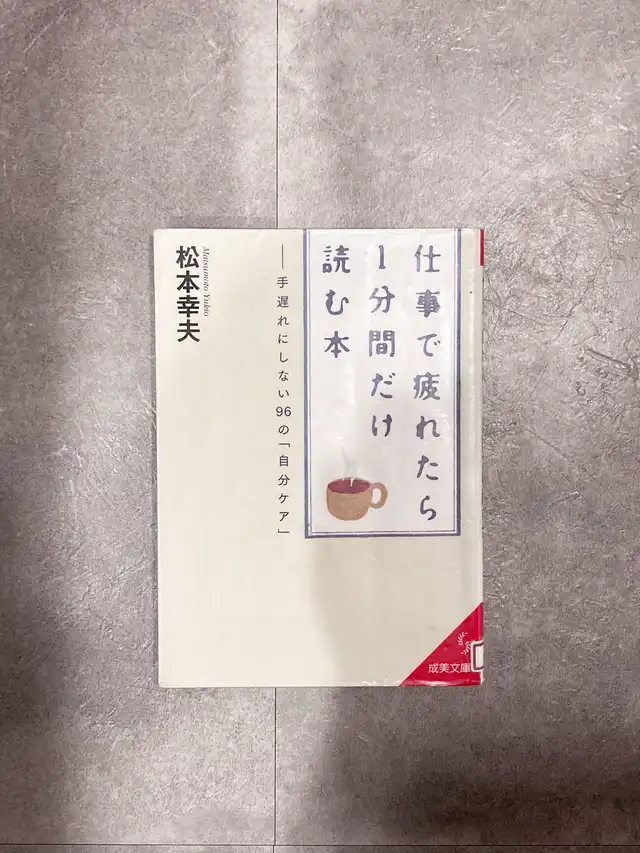 仕事で疲れたら
1分間だけ
読む本
――手遅れにしない96の「自分ケア」
Matsumoto Yukio
松本幸夫
成美文庫